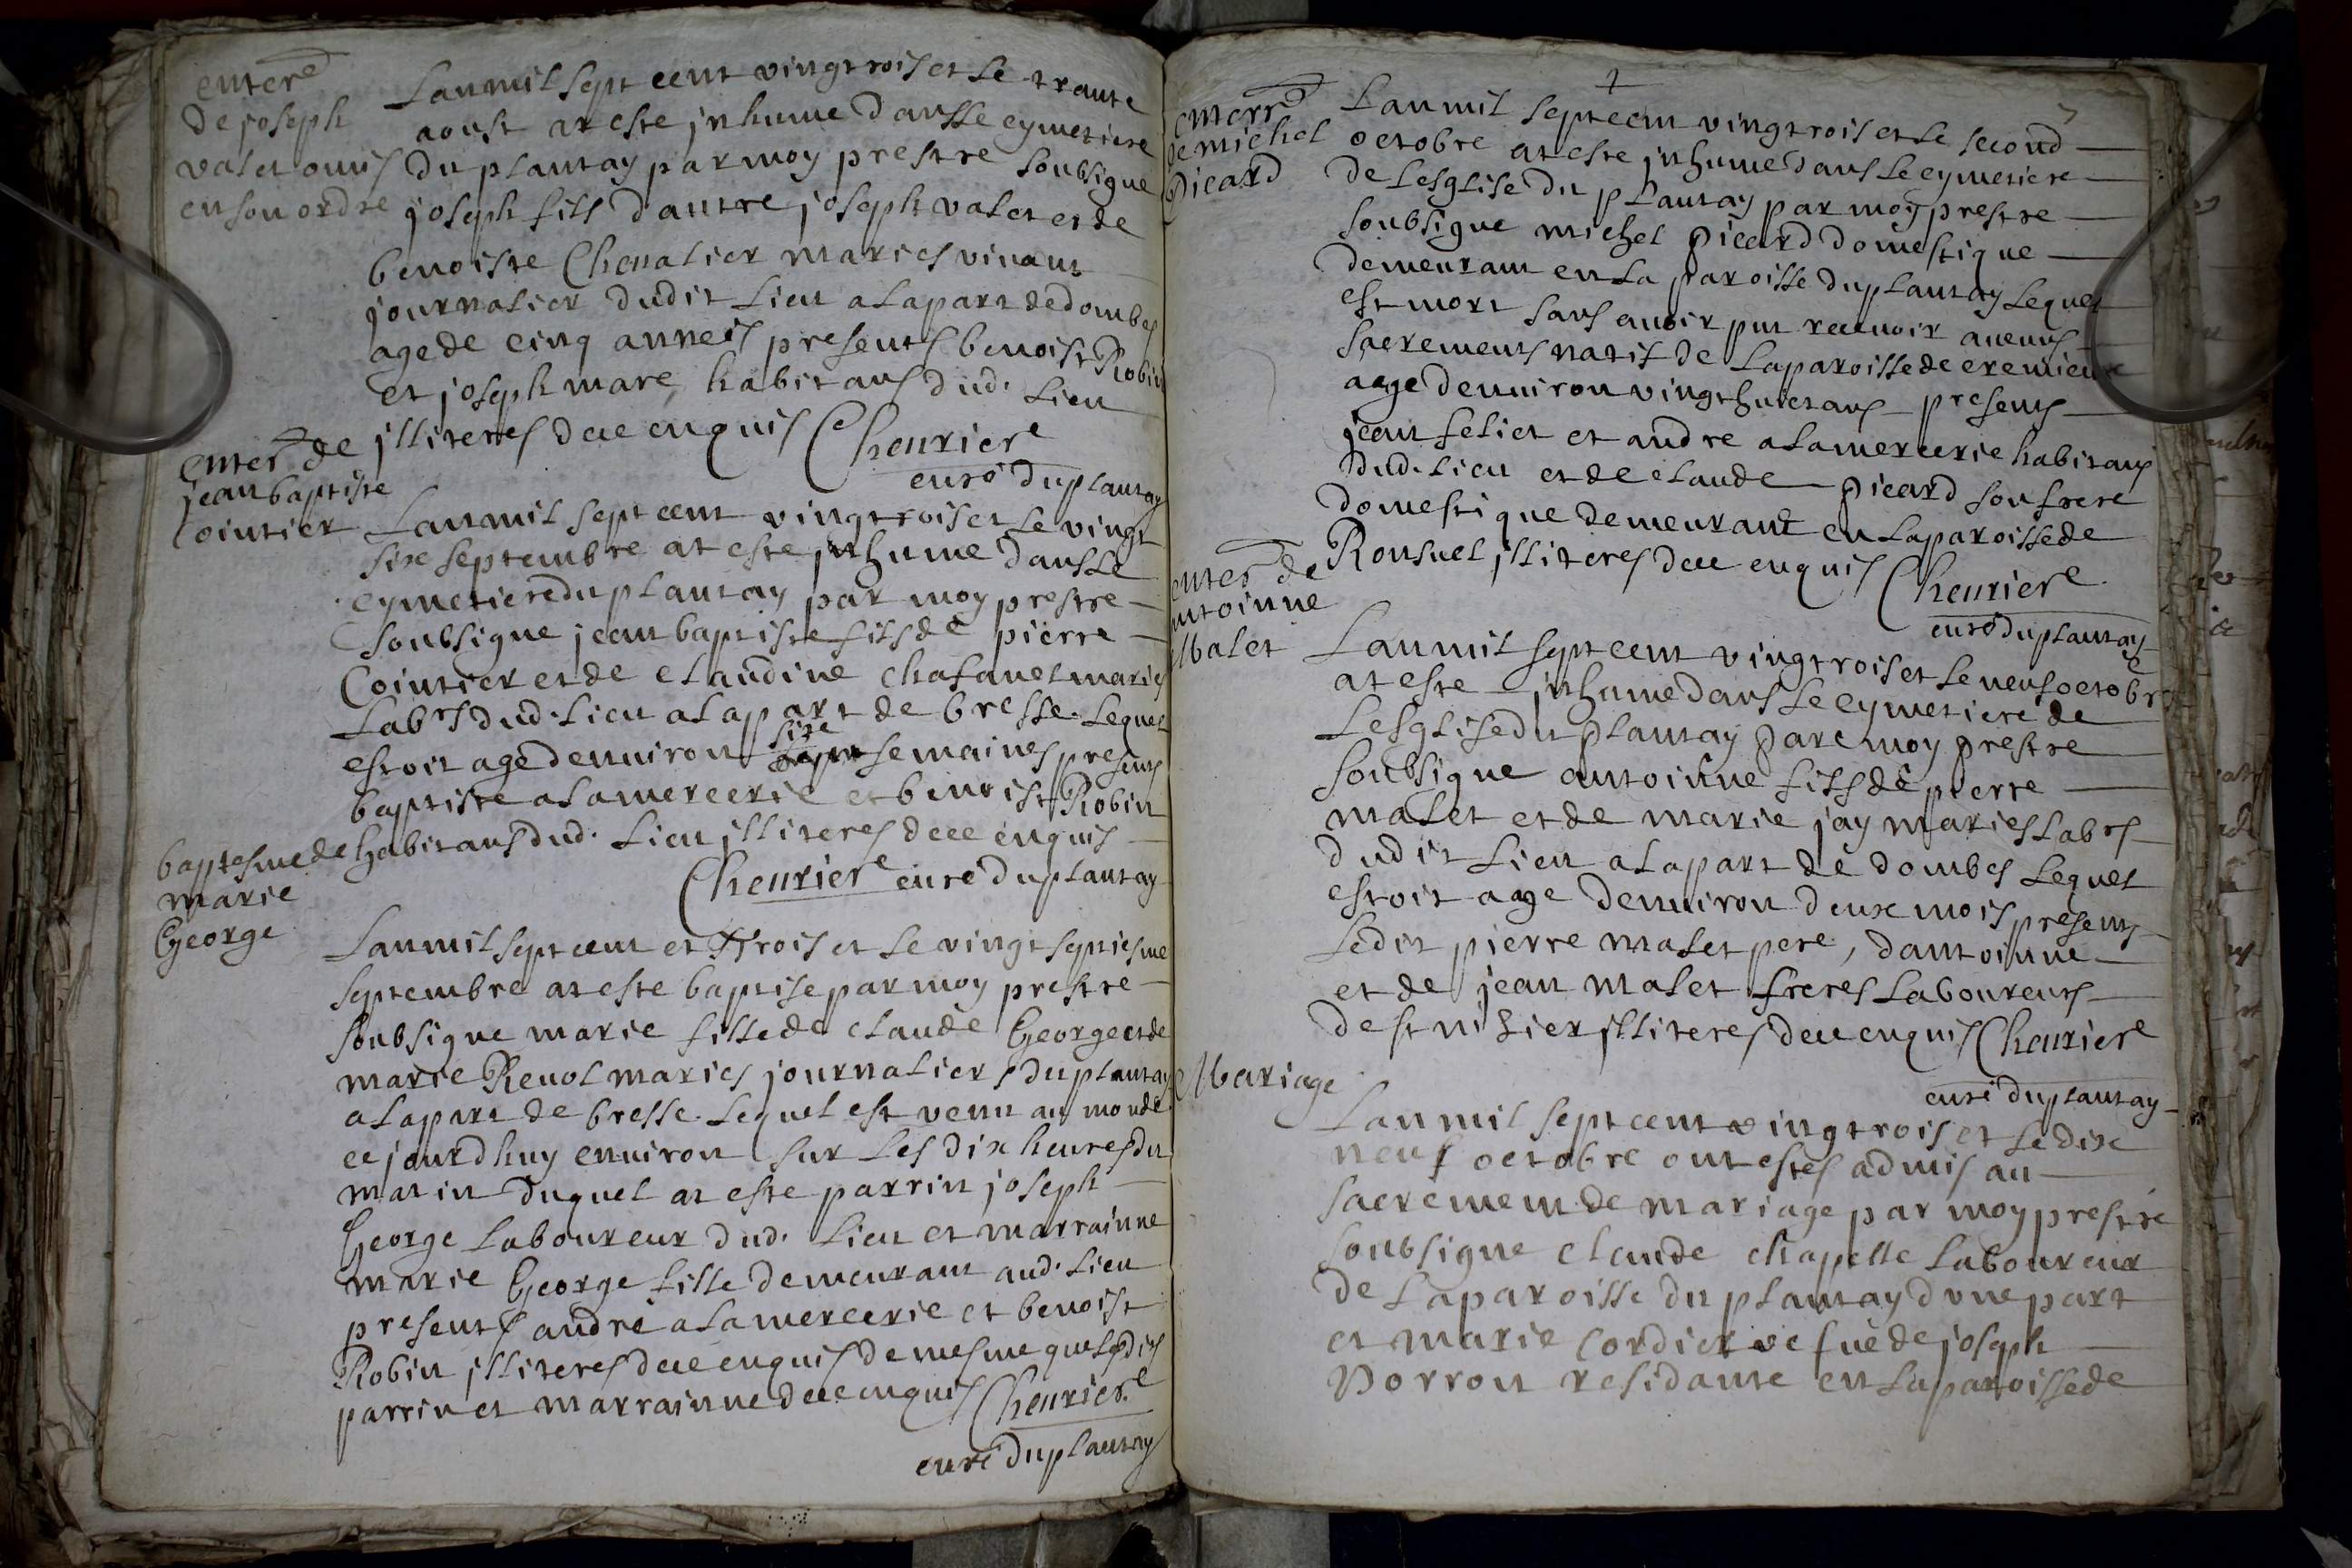 enterré
de joseph
valet omis
en son ordre
Lan mil sept cent vingtrois et le trante
aoust at este jnhume dans le cymetiere
du plantay par moy prestre soubsigne
joseph fils dautre joseph valet et de
benoiste Chevalier maries vivant
journalier dudit lieu a la part de dombes
age de cinq annees presents benoist Robin
et joseph mare habitans dud. lieu
jlliteres dece enquis Cheuriere
curé du plantay
enter de
jean baptiste
Cointier
Lan mil sept cent vingtrois et le vingt
six septembre at este jnhume dans le
cymetiere du plantay par moy prestre
soubsigne jean baptiste fils de pierre
Cointier et de claudine chatanet maries
labrs dud. lieu a la part de bresse lequel
estoit age denuiron six semaines presents
baptiste alamercerie et benoist Robin
habitans dud. lieu jlliteres dece enquis
Cheuriere curé du plantay
baptesme de
marie
George
Lan mil sept cent et trois et le vingt septiesme
septembre at este baptise par moy prestre
soubsigne marie fille de claude George et de
marie Revol maries journaliers du plantay
a la part de bresse lequel est venu au monde
ce jourdhuy enuiron sur les dix heures du
matin duquel at este parrin joseph
George laboureur dud. lieu et marrainne
marie George fille demeurant aud. lieu
presents andré alamercerie et benoist
Robin jlliteres dece enquis de mesme que lesdits
parrin et marrainne dece enquis Cheuriere
curé du plantay
7
enterré
de michel
picard
Lan mil sept cent vingtrois et le second
octobre at este jnhume dans le cymetiere
de lesglise du plantay par moy prestre
soubsigne michel picard domestique
demeurant en la paroisse du plantay lequel
est mort sans auoir put receuoir aucuns
sacrements natif de la paroisse de cremieux
aage denuiron vingthuict ans presents
jean feliet et andre alamercerie habitans
dud. lieu et de claude picard son frere
domestique demeurant en la paroisse de
Ronsuel jlliteres dece enquis Cheuriere
curé du plantay
enter de
antoinne
Malet
Lan mil sept cent vingtrois et le neuf octobre
at este jnhume dans le cymetiere de
lesglise du plantay par moy prestre
soubsigne antoinne fils de pierre
malet et de marie jay maries labrs
dudit lieu a la part de dombes lequel
estoit aage denuiron deux mois presents
ledit pierre malet pere, dantoinne
et de jean malet freres laboureurs
de st nizier jlliteres dece enquis Cheuriere
curé du plantay
Mariage
Lan mil sept cent vingtrois et le dix
neuf octobre ont estes admis au
sacrement de mariage par moy prestre
soubsigne claude chapelle laboureur
de la paroisse du plantay dune part
et marie Cordier vefue de joseph
Vorron residante en la paroisse de